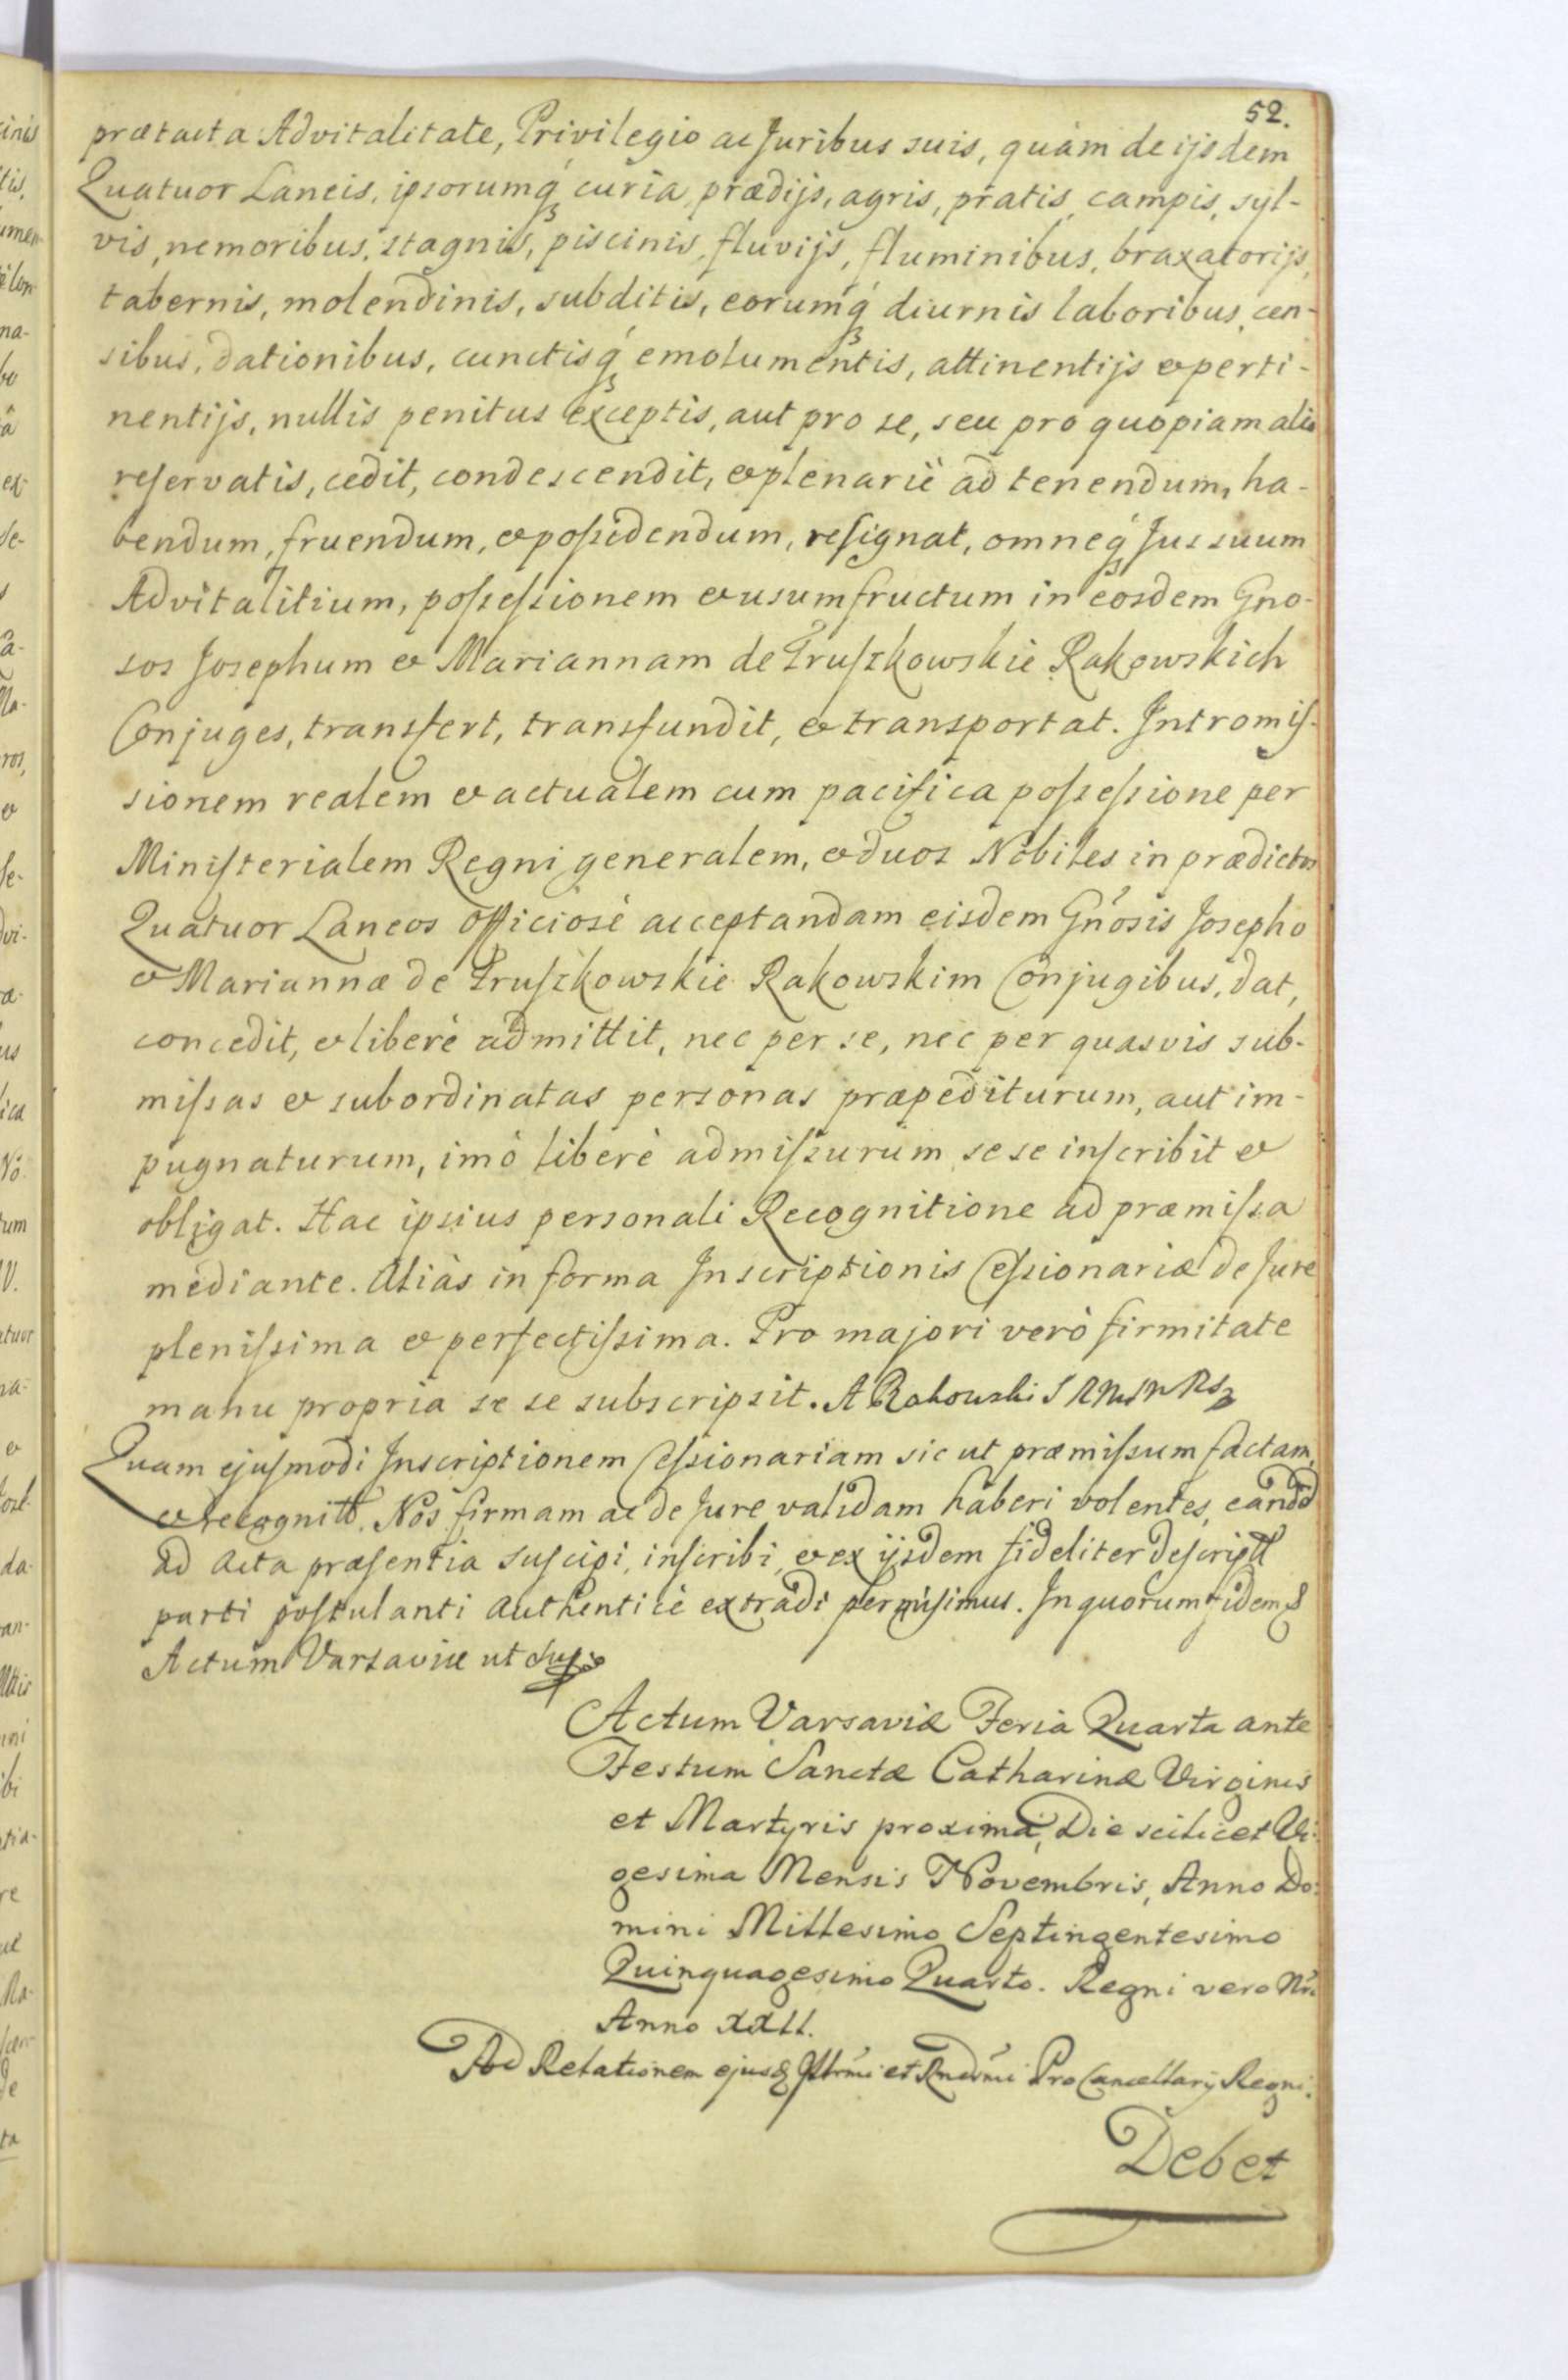 52.
prætacta Advitalitate, Privilegio ac Juribus suis, quàm de ijsdem
Quatuor Laneis, ipsorumq́ curia, prædijs, agris, pratis, campis, syl-
vis, nemoribus, stagnis, piscinis, fluvijs, fluminibus, braxatorijs,
tabernis, molendinis, subditis, eorumq́ diurnis laboribus, cen-
sibus, dationibus, cunctisq́ emolumentis, attinentijs & perti-
nentijs, nullis penitus exceptis, aut pro se, seu pro quopiam alio
reservatis, cedit, condescendit, & plenariè ad tenendum, ha-
bendum, fruendum, & possidendum, resignat, omneq́ Jus suum
Advitalitium, possessionem & usumfructum in eosdem Gno-
sos Josephum & Mariannam de Truszkowskie Rakowskich
Conjuges, transfert, transfundit, & transportat. Intromis-
sionem realem & actualem cum pacifica possessione per
Ministerialem Regni generalem, & duos Nobiles in prædictos
Quatuor Laneos officiosè acceptandam eisdem Gńosis Josepho
& Mariannæ de Truszkowskie Rakowskim Conjugibus, dat,
concedit, & liberè admittit, nec per se, nec per quasvis sub-
missas & subordinatas personas præpediturum, aut im-
pugnaturum, imò liberè admissurum sese inscribit &
obligat. Hac ipsius personali Recognitione ad præmissa
mediante. Aliàs in forma Inscriptionis Cessionariæ de Jure
plenissima & perfectissima. Pro majori verò firmitate
manu propria se se subscripsit. A Rakowski
Quam ejusmodi Inscriptionem Cessionariam sic ut præmissum factam,
& recognitt. Nos firmam ac de Jure validam haberi volentes, eandd
ad Acta præsentia suscipi, inscribi, & ex ijsdem fideliter descriptt
parti postulanti Authenticè extradi permisimus. In quorum fidem &
Actum Varsaviæ ut sup:
Actum Varsaviæ Feria Quarta ante
Festum Sanctæ Catharinæ Virginis
et Martyris proxima, Die scilicet Vi:
gesima Mensis Novembris, Anno Do:
mini Millesimo Septingentesimo
Quinquagesimo Quarto. Regni vero Nri
Anno XXII.
Ad Relationem ejusd Illrmi et Rndmi ProCancellarij Regni.
Debet